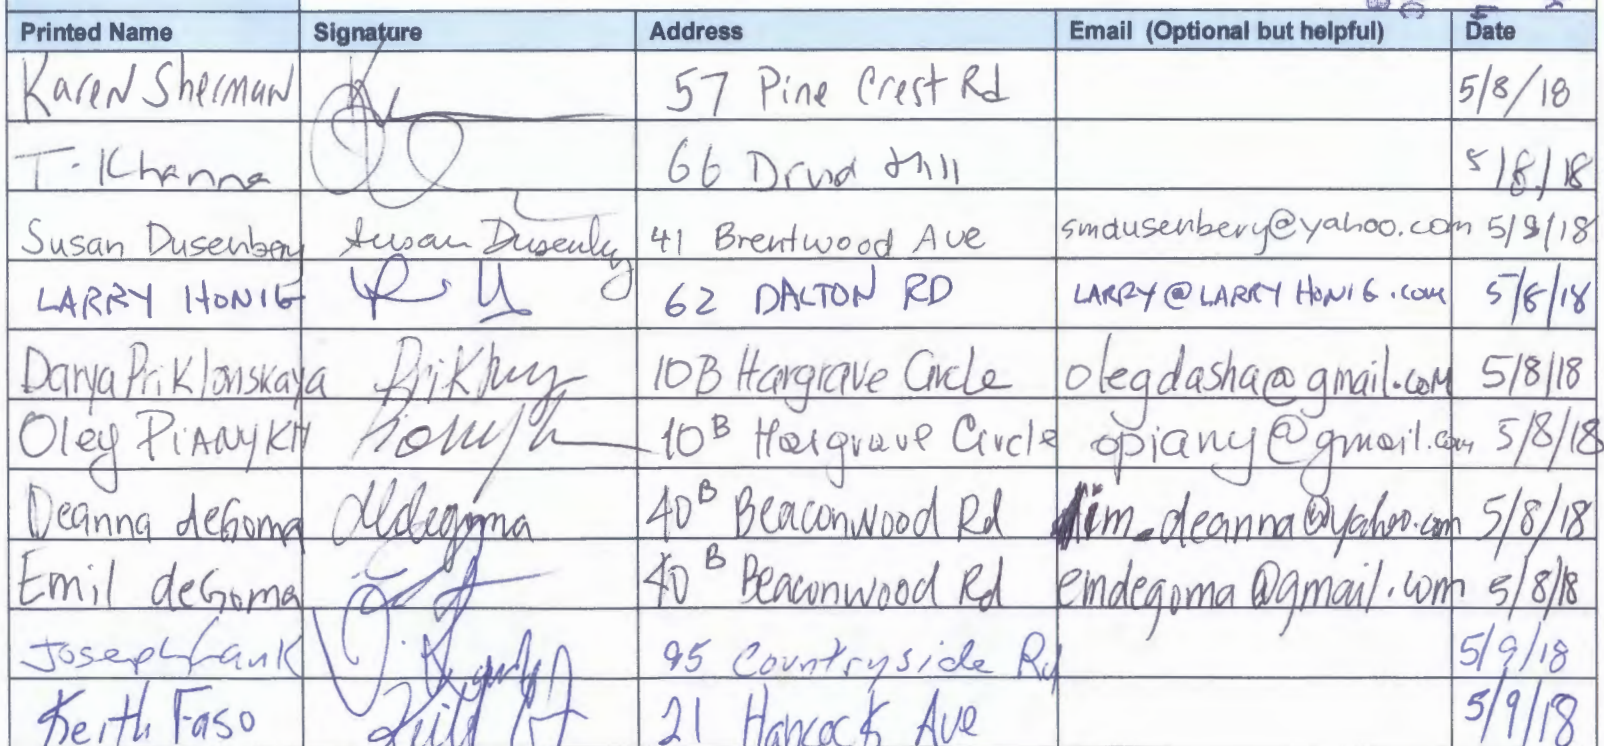 Printed Name Signature Address Email (Optional but helpful) Date
Karen Sherman 57 Pine Crest Rd 5/8/18
T. Khanna 66 Druid Hill 5/8/18
Susan Dusenbery Susan Dusenbery 41 Brentwood Ave smdusenbery@yahoo.com 5/8/18
LARRY HONIG 62 DALTON RD LARRY@LARRYHONIG.com 5/8/18
Darya Priklonskaya 10B Hargrave Circle olegdasha@gmail.com 5/8/18
Oleg PIANYKH 10B Hargrave Circle opiany@gmail.com 5/8/18
Deanna deGoma dldegoma 40B Beaconwood Rd deanna@yahoo.com 5/8/18
Emil deGoma 40B Beaconwood Rd emdegoma@gmail.com 5/8/18
Joseph 95 Countryside Rd 5/9/18
Keith Faso 21 Hancock Ave 5/9/18